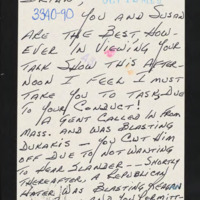 BRIAN,
3340-90 YOU AND SUSAN
ARE THE BEST, HOW-
EVER IN VIEWING YOUR
TALK SHOW THIS AFTER-
NOON I FEEL I MUST
TAKE YOU TO TASK DUE
TO YOUR CONDUCT!
A GENT CALLED IN FROM
MASS. AND WAS BLASTING
DUKAKIS - YOU CUT HIM
OFF DUE TO NOT WANTING
TO HEAR SLANDER - SHORTLY
THEREAFTER A REPUBLICAN
HATER WAS BLASTING REAGAN
AND YOU PERMITT-